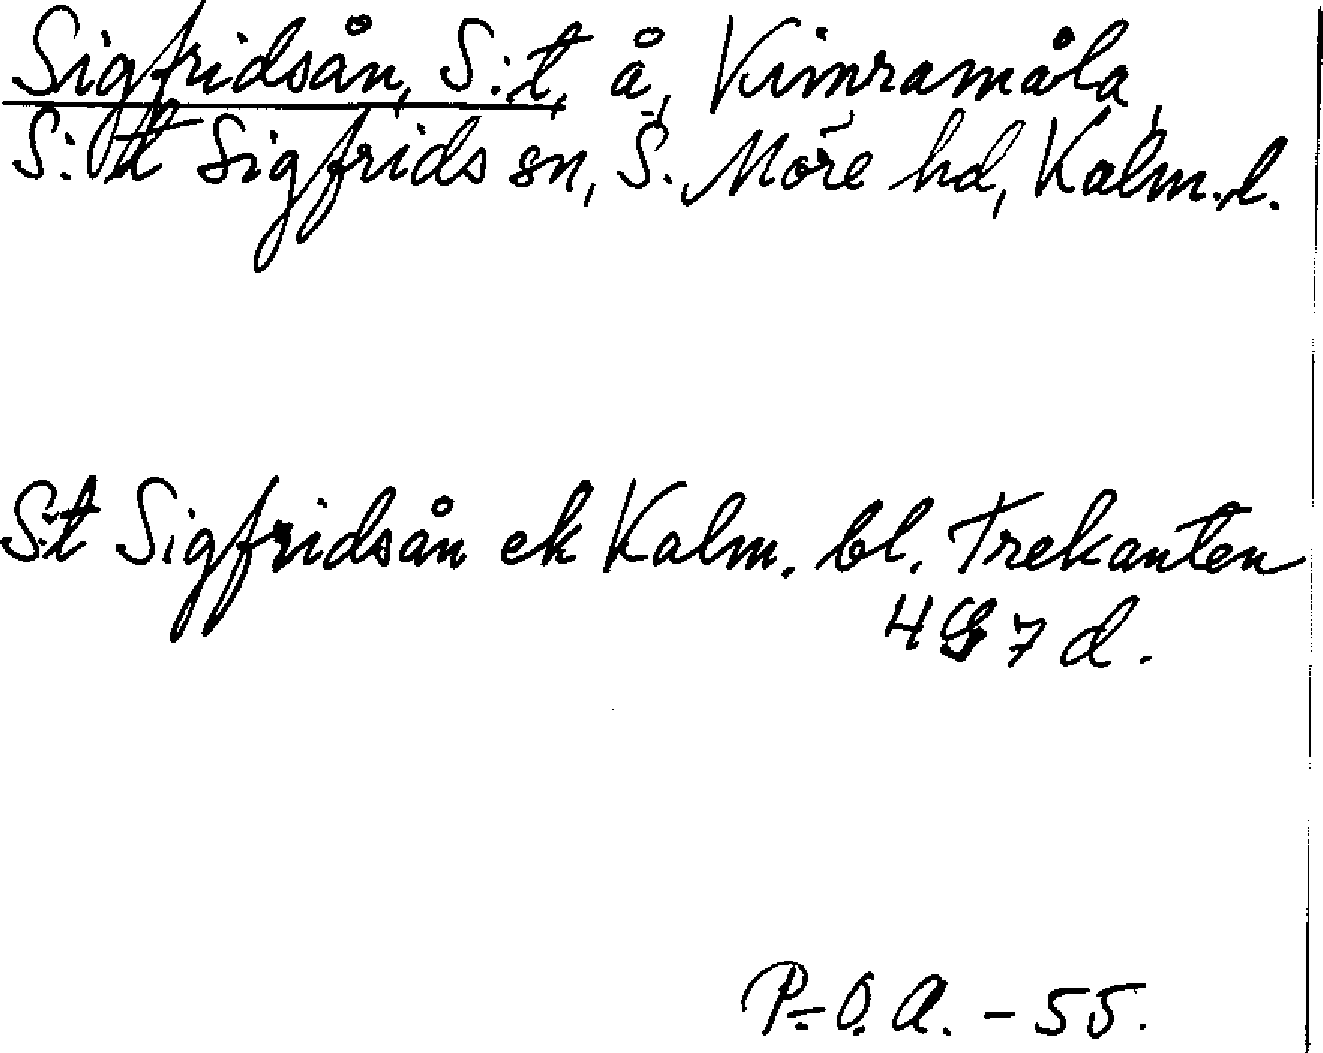 Sigfridsån, S:t, å, Kimramåla,
S:t Sigfrids sn, S. Möre hd, Kalm. l.
S:t Sigfridsån ek Kalm. bl. Trekanten
4G7d.
P.-O. A. - 55.